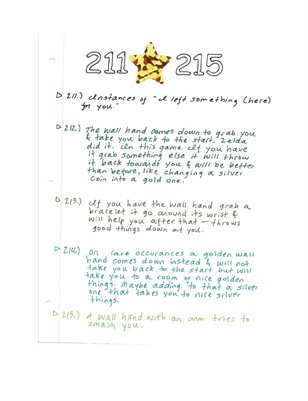 211 215
▷ 211.) Instances of "I left something (here)
for you."
▷ 212.) The wall hand comes down to grab you
& take you back to the start. Zelda
did it. In this game if you have
it grab something else it will throw
it back towards you & will be better
than before, like changing a silver
coin into a gold one.
▷ 213.) If you have the wall hand grab a
bracelet it go around its wrist &
will help you after that — throws
good things down at you.
▷ 214.) On rare occurances a golden wall
hand comes down instead & will not
take you back to the start but will
take you to a room of nice golden
things. Maybe adding to that a silver
one that takes you to nice silver
things.
▷ 215.) A wall hand with an arm tries to
smash you.